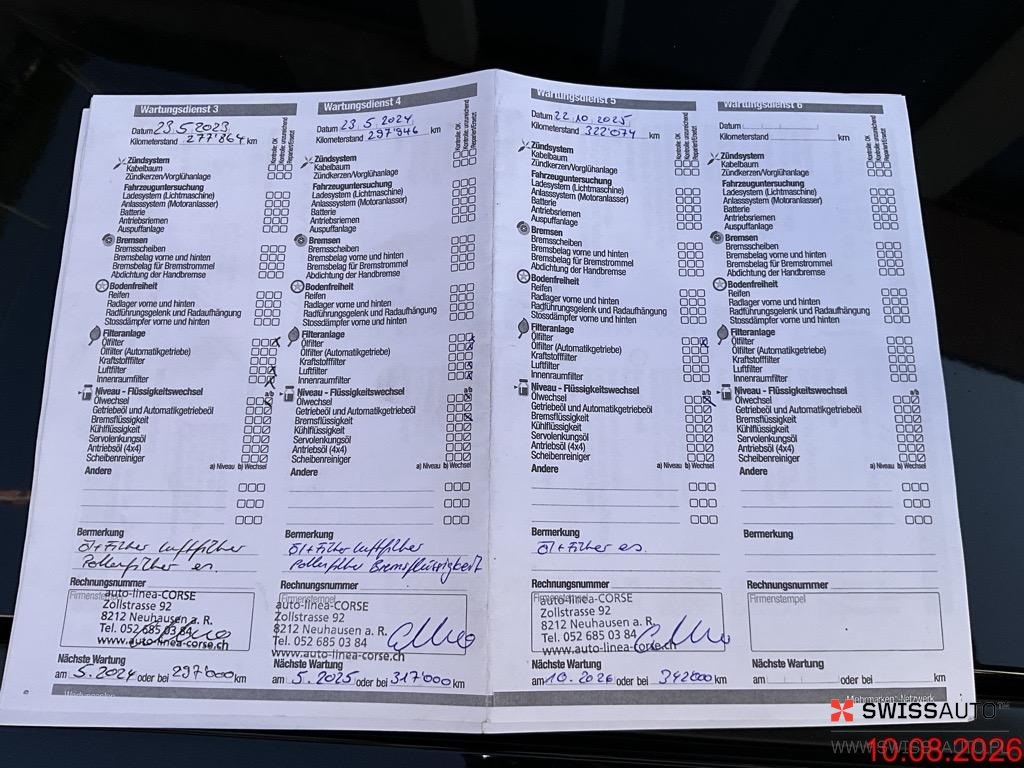 Wartungsdienst 3
Datum 23.5.2023
Kilometerstand 277'864 km
Kontrolle OK
Kontrolle: unzureichend
Repariert/Ersetzt
Zündsystem
Kabelbaum
Zündkerzen/Vorglühanlage
Fahrzeuguntersuchung
Ladesystem (Lichtmaschine)
Anlasssystem (Motoranlasser)
Batterie
Antriebsriemen
Auspuffanlage
Bremsen
Bremsscheiben
Bremsbelag vorne und hinten
Bremsbelag für Bremstrommel
Abdichtung der Handbremse
Bodenfreiheit
Reifen
Radlager vorne und hinten
Radführungsgelenk und Radaufhängung
Stossdämpfer vorne und hinten
Filteranlage
Ölfilter
Ölfilter (Automatikgetriebe)
Kraftstofffilter
Luftfilter
Innenraumfilter
Niveau - Flüssigkeitswechsel
Ölwechsel
Getriebeöl und Automatikgetriebeöl
Bremsflüssigkeit
Kühlflüssigkeit
Servolenkungsöl
Antriebsöl (4x4)
Scheibenreiniger
a) Niveau b) Wechsel
Andere
Bermerkung
Öl+Filter Luftfilter
Pollenfilter es.
Rechnungsnummer
Firmenstempel
auto-linea-CORSE
Zollstrasse 92
8212 Neuhausen a. R.
Tel. 052 685 03 84
www.auto-linea-corse.ch
Nächste Wartung
am 5.2024 oder bei 297'000 km
Wartungsdienst 4
Datum 23.5.2024
Kilometerstand 297'946 km
Kontrolle OK
Kontrolle: unzureichend
Repariert/Ersetzt
Zündsystem
Kabelbaum
Zündkerzen/Vorglühanlage
Fahrzeuguntersuchung
Ladesystem (Lichtmaschine)
Anlasssystem (Motoranlasser)
Batterie
Antriebsriemen
Auspuffanlage
Bremsen
Bremsscheiben
Bremsbelag vorne und hinten
Bremsbelag für Bremstrommel
Abdichtung der Handbremse
Bodenfreiheit
Reifen
Radlager vorne und hinten
Radführungsgelenk und Radaufhängung
Stossdämpfer vorne und hinten
Filteranlage
Ölfilter
Ölfilter (Automatikgetriebe)
Kraftstofffilter
Luftfilter
Innenraumfilter
Niveau - Flüssigkeitswechsel
Ölwechsel
Getriebeöl und Automatikgetriebeöl
Bremsflüssigkeit
Kühlflüssigkeit
Servolenkungsöl
Antriebsöl (4x4)
Scheibenreiniger
a) Niveau b) Wechsel
Andere
Bermerkung
Öl+Filter Luftfilter
Pollenfilter Bremsflüssigkeit
Rechnungsnummer
Firmenstempel
auto-linea-CORSE
Zollstrasse 92
8212 Neuhausen a. R.
Tel. 052 685 03 84
www.auto-linea-corse.ch
Nächste Wartung
am 5.2025 oder bei 317'000 km
Wartungsdienst 5
Datum 22.10.2025
Kilometerstand 322'074 km
Kontrolle OK
Kontrolle: unzureichend
Repariert/Ersetzt
Zündsystem
Kabelbaum
Zündkerzen/Vorglühanlage
Fahrzeuguntersuchung
Ladesystem (Lichtmaschine)
Anlasssystem (Motoranlasser)
Batterie
Antriebsriemen
Auspuffanlage
Bremsen
Bremsscheiben
Bremsbelag vorne und hinten
Bremsbelag für Bremstrommel
Abdichtung der Handbremse
Bodenfreiheit
Reifen
Radlager vorne und hinten
Radführungsgelenk und Radaufhängung
Stossdämpfer vorne und hinten
Filteranlage
Ölfilter
Ölfilter (Automatikgetriebe)
Kraftstofffilter
Luftfilter
Innenraumfilter
Niveau - Flüssigkeitswechsel
Ölwechsel
Getriebeöl und Automatikgetriebeöl
Bremsflüssigkeit
Kühlflüssigkeit
Servolenkungsöl
Antriebsöl (4x4)
Scheibenreiniger
a) Niveau b) Wechsel
Andere
Bermerkung
Öl+Filter es.
Rechnungsnummer
Firmenstempel
auto-linea-CORSE
Zollstrasse 92
8212 Neuhausen a. R.
Tel. 052 685 03 84
www.auto-linea-corse.ch
Nächste Wartung
am 10.2026 oder bei 342'000 km
Wartungsdienst 6
Datum
Kilometerstand km
Kontrolle OK
Kontrolle: unzureichend
Repariert/Ersetzt
Zündsystem
Kabelbaum
Zündkerzen/Vorglühanlage
Fahrzeuguntersuchung
Ladesystem (Lichtmaschine)
Anlasssystem (Motoranlasser)
Batterie
Antriebsriemen
Auspuffanlage
Bremsen
Bremsscheiben
Bremsbelag vorne und hinten
Bremsbelag für Bremstrommel
Abdichtung der Handbremse
Bodenfreiheit
Reifen
Radlager vorne und hinten
Radführungsgelenk und Radaufhängung
Stossdämpfer vorne und hinten
Filteranlage
Ölfilter
Ölfilter (Automatikgetriebe)
Kraftstofffilter
Luftfilter
Innenraumfilter
Niveau - Flüssigkeitswechsel
Ölwechsel
Getriebeöl und Automatikgetriebeöl
Bremsflüssigkeit
Kühlflüssigkeit
Servolenkungsöl
Antriebsöl (4x4)
Scheibenreiniger
a) Niveau b) Wechsel
Andere
Bermerkung
Rechnungsnummer
Firmenstempel
Nächste Wartung
am oder bei km
Wartungsplan
Mehrmarken-Netzwerk
SWISSAUTO
10.08.2026